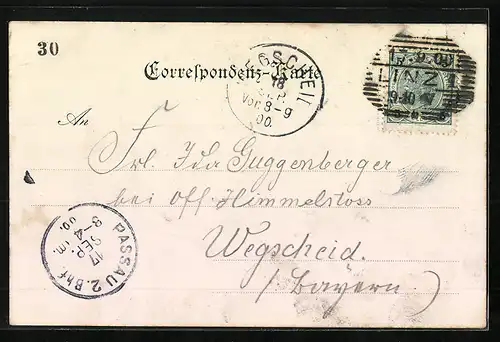 30
Correspondenz-Karte
WEGSCHEID
18
SEP.
Vor. 8-9
00.
17.9.00
LINZ 1
An
Frl. Ida Guggenberger
bei Off. Himmelstoss
Wegscheid.
(Bayern)
PASSAU 2. Bhf
17
SEP.
3-4
00.